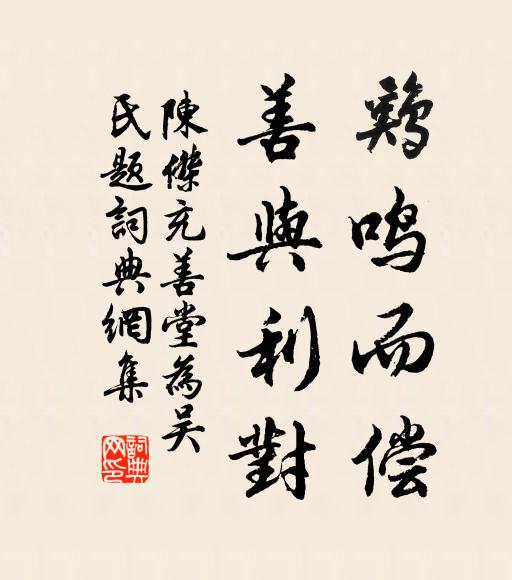 鷄鸣而偿
善與利對
陳傑充善堂為吴
氏題詞典網集
詞典网印